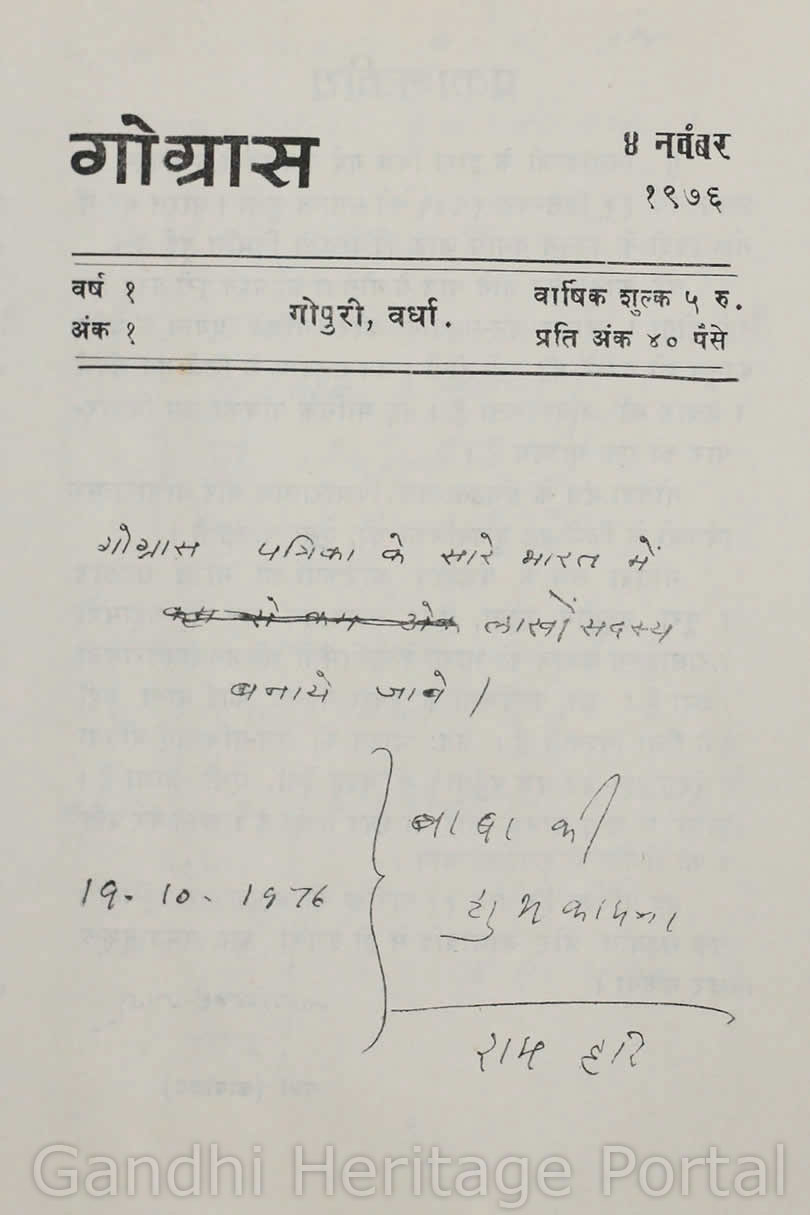 गोग्रास
४ नवंबर
१९७६
वर्ष १
अंक १
गोपुरी, वर्धा.
वार्षिक शुल्क ५ रु.
प्रति अंक ४० पैसे
गोग्रास पत्रिका के सारे भारत में
कम से कम अेक लाखों सदस्य
बनाये जावे।
19. 10. 1976
बाबा की
शुभ कामना
राम हरि
Gandhi Heritage Portal